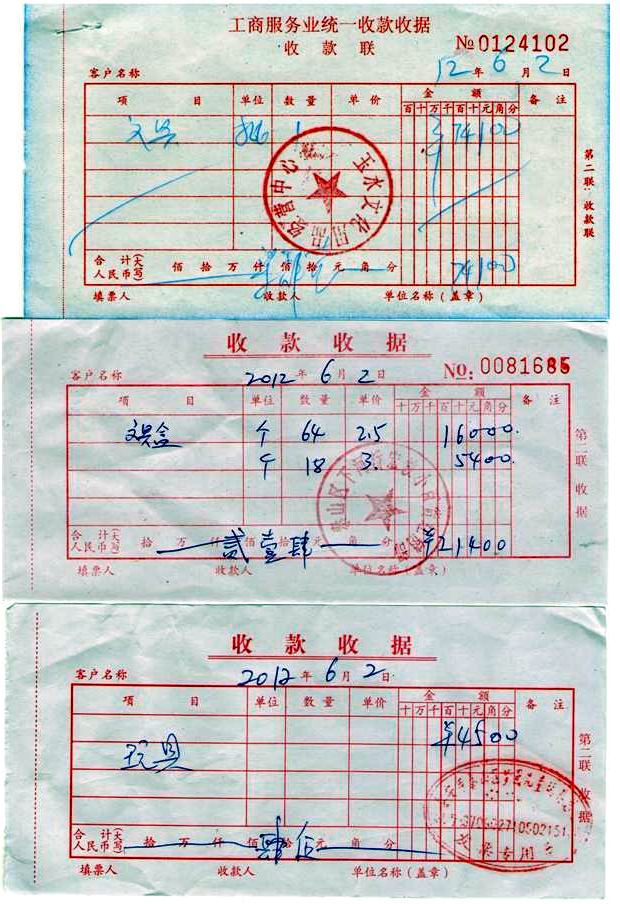 工商服务业统一收款收据
收款联
№0124102
客户名称 12年6月2日
项目 单位 数量 单价 金额 备注
百十万千百十元角分
文具 1 74100
玉水文化用品经营中心
第二联:收款联
合计(大写)人民币 佰拾万仟佰拾元角分 74100
填票人 收款人 单位名称(盖章)
收款收据
客户名称 2012年6月2日 №:0081685
项目 单位 数量 单价 金额 备注
十万千百十元角分
文具盒 个 64 2.5 16000
个 18 3. 5400
第二联 收据
合计(大写)人民币 拾万仟佰拾元角分 贰壹肆 ¥21400
填票人 收款人 单位名称(盖章)
收款收据
客户名称 2012年6月2日
项目 单位 数量 单价 金额 备注
十万千百十元角分
¥4500
玩具
第二联 收据
发票专用章
合计(大写)人民币 拾万仟佰拾元角分 肆伍
填票人 收款人 单位名称(盖章)